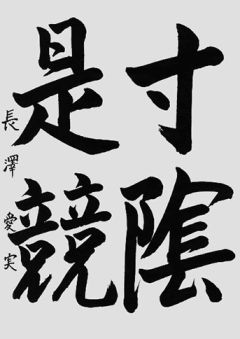 寸陰
是競
長澤愛実